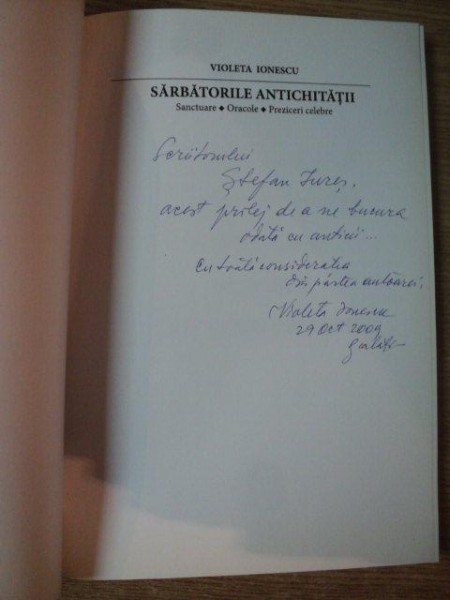 VIOLETA IONESCU
SĂRBĂTORILE ANTICHITĂȚII
Sanctuare ◆ Oracole ◆ Preziceri celebre
Scriitorului
Ștefan Iureș,
acest prilej de a ne bucura
odată cu anticii...
cu toată considerația
din partea autoarei,
Violeta Ionescu
29 Oct 2009
Galați